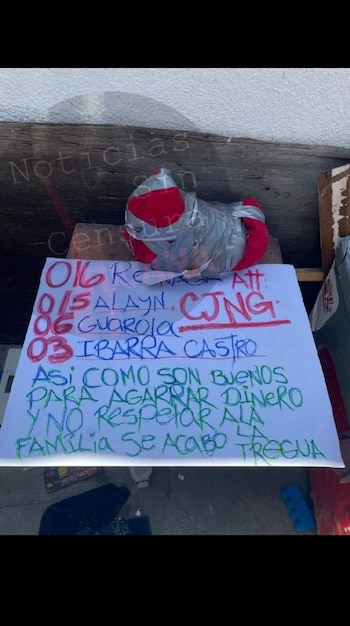 Noticias
Sin
Censura
016 Att.
015 ALAYN. CJNG.
06 GUAROJA
03 IBARRA CASTRO
ASi COMO SON BUENOS
PARA AGARRAR DiNERO
Y NO RESPETAR A LA
FAMiLIA SE ACABO LA
TREGUA